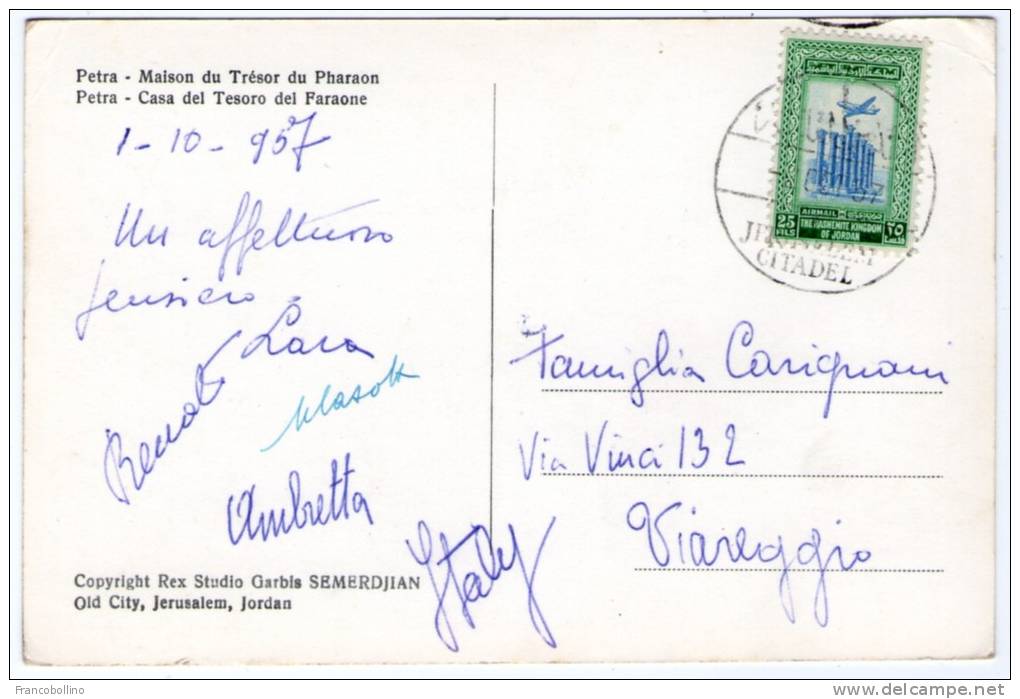 Petra - Maison du Trésor du Pharaon
Petra - Casa del Tesoro del Faraone
1-10-957
Un affettuoso
pensiero
Lara
Renato
Ambretta
Copyright Rex Studio Garbis SEMERDJIAN
Old City, Jerusalem, Jordan
AIRMAIL
25 FILS
THE HASHEMITE KINGDOM
OF JORDAN
٢٥
JERUSALEM
CITADEL
Famiglia Carignani
Via Vinci 132
Viareggio
Italy
Francobollino
www.delcampe.net